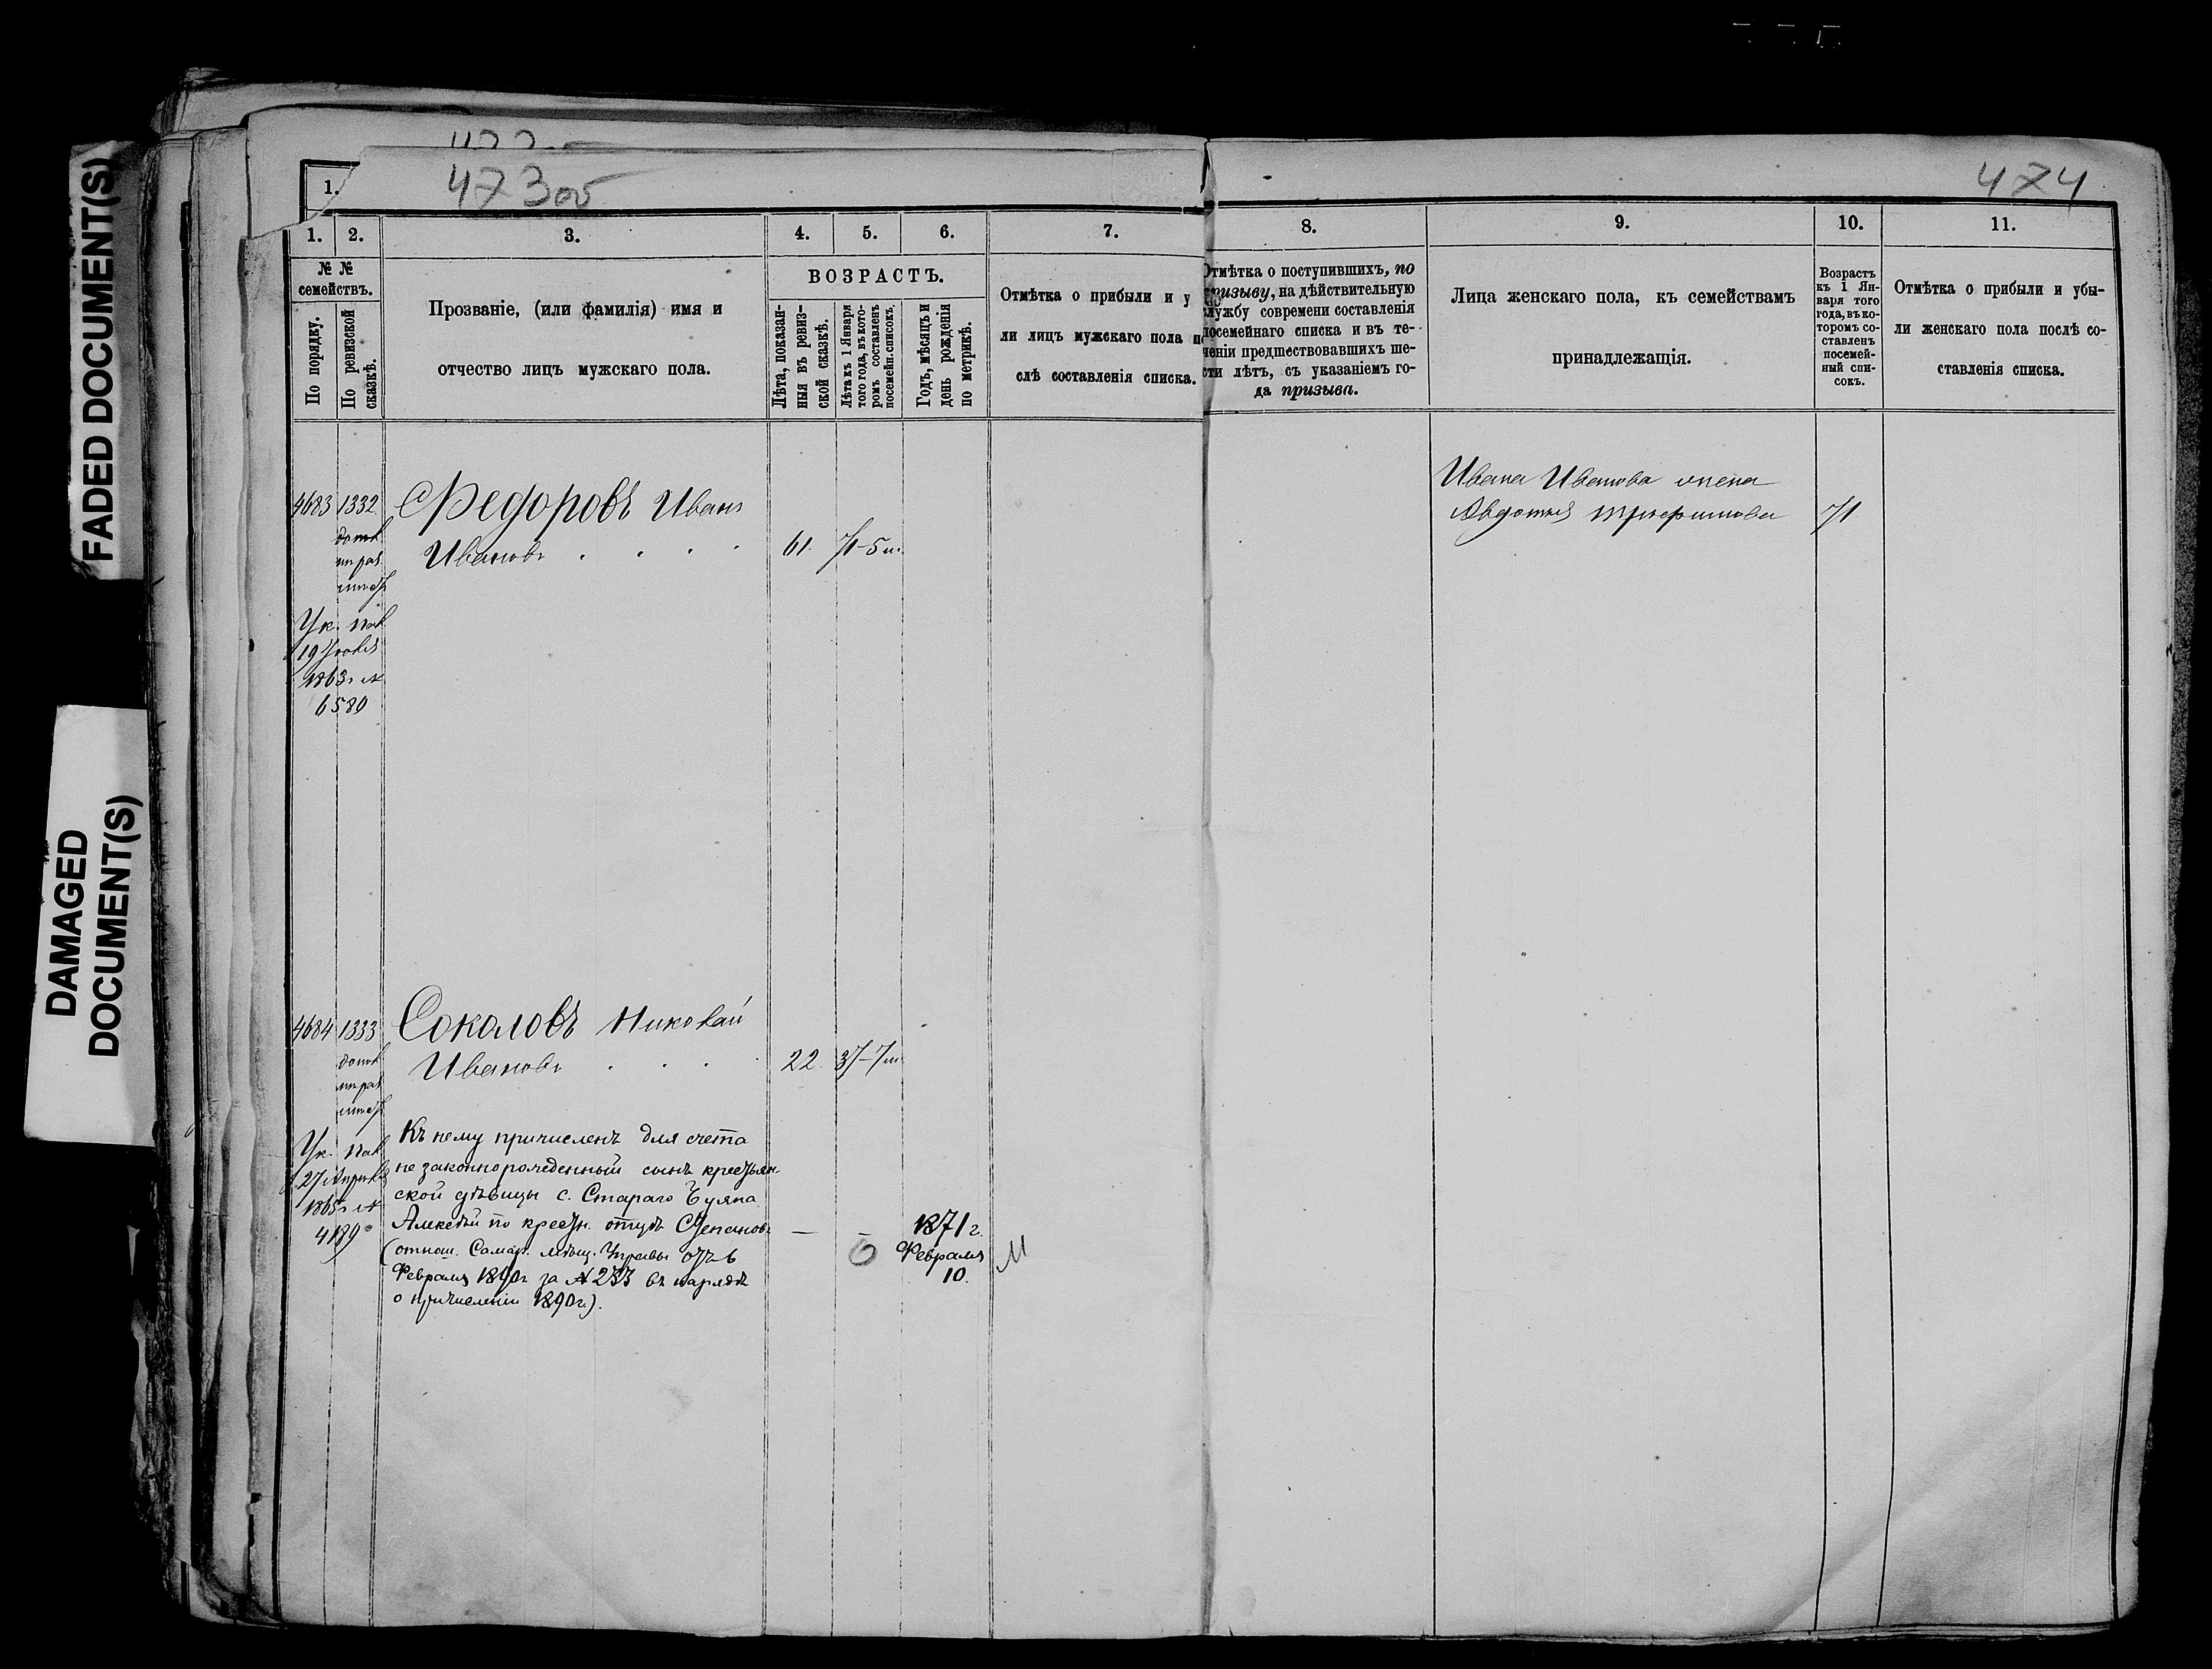 FADED DOCUMENT(S)
DAMAGED
DOCUMENT(S)
473об
474
1.
1. 2. 3. 4. 5. 6. 7.
№ №
семействъ.
По порядку.
По ревизской
сказкѣ.
Прозваніе, (или фамилія) имя и
отчество лицъ мужскаго пола.
ВОЗРАСТЪ.
Лѣта, показан-
ныя въ ревиз-
ской сказкѣ.
Лѣта къ 1 Января
того года, въ кото-
ромъ составленъ
посемейн. списокъ.
Годъ, мѣсяцъ и
день рожденія
по метрикѣ.
Отмѣтка о прибыли и у
ли лицъ мужскаго пола по
слѣ составленія списка.
8. 9. 10. 11.
Отмѣтка о поступившихъ, по
призыву, на дѣйствительную
службу современи составленія
посемейнаго списка и въ те-
ченіи предшествовавшихъ ше-
сти лѣтъ, съ указаніемъ го-
да призыва.
Лица женскаго пола, къ семействамъ
принадлежащія.
Возрастъ
къ 1 Ян-
варя того
года, въ ко-
торомъ со-
ставленъ
посемей-
ный спи-
сокъ.
Отмѣтка о прибыли и убы-
ли женскаго пола послѣ со-
ставленія списка.
4683 1332 Федоровъ Иванъ
Ивановъ 61. 71-5 м.
Ук. Пал
19 Іюля
1863 г №
6580
Ивана Иванова жена
Авдотья Трифонова 71
4684 1333 Соколовъ Николай
Ивановъ 22. 37-7 м
Ук. Пал
27 Апрѣля
1865 г №
4189
Къ нему причисленъ для счета
незаконнорожденный сынъ крестьян-
ской дѣвицы с. Стараго Буяна
Алексѣй по крестн. отцѣ Степановъ — –
(отнош. Самар. мѣщ. Управы отъ 6
Февраля 1890 г за № 233 въ нарядѣ
о причисленіи 1890 г.).
1871 г.
Февраля
10.
М